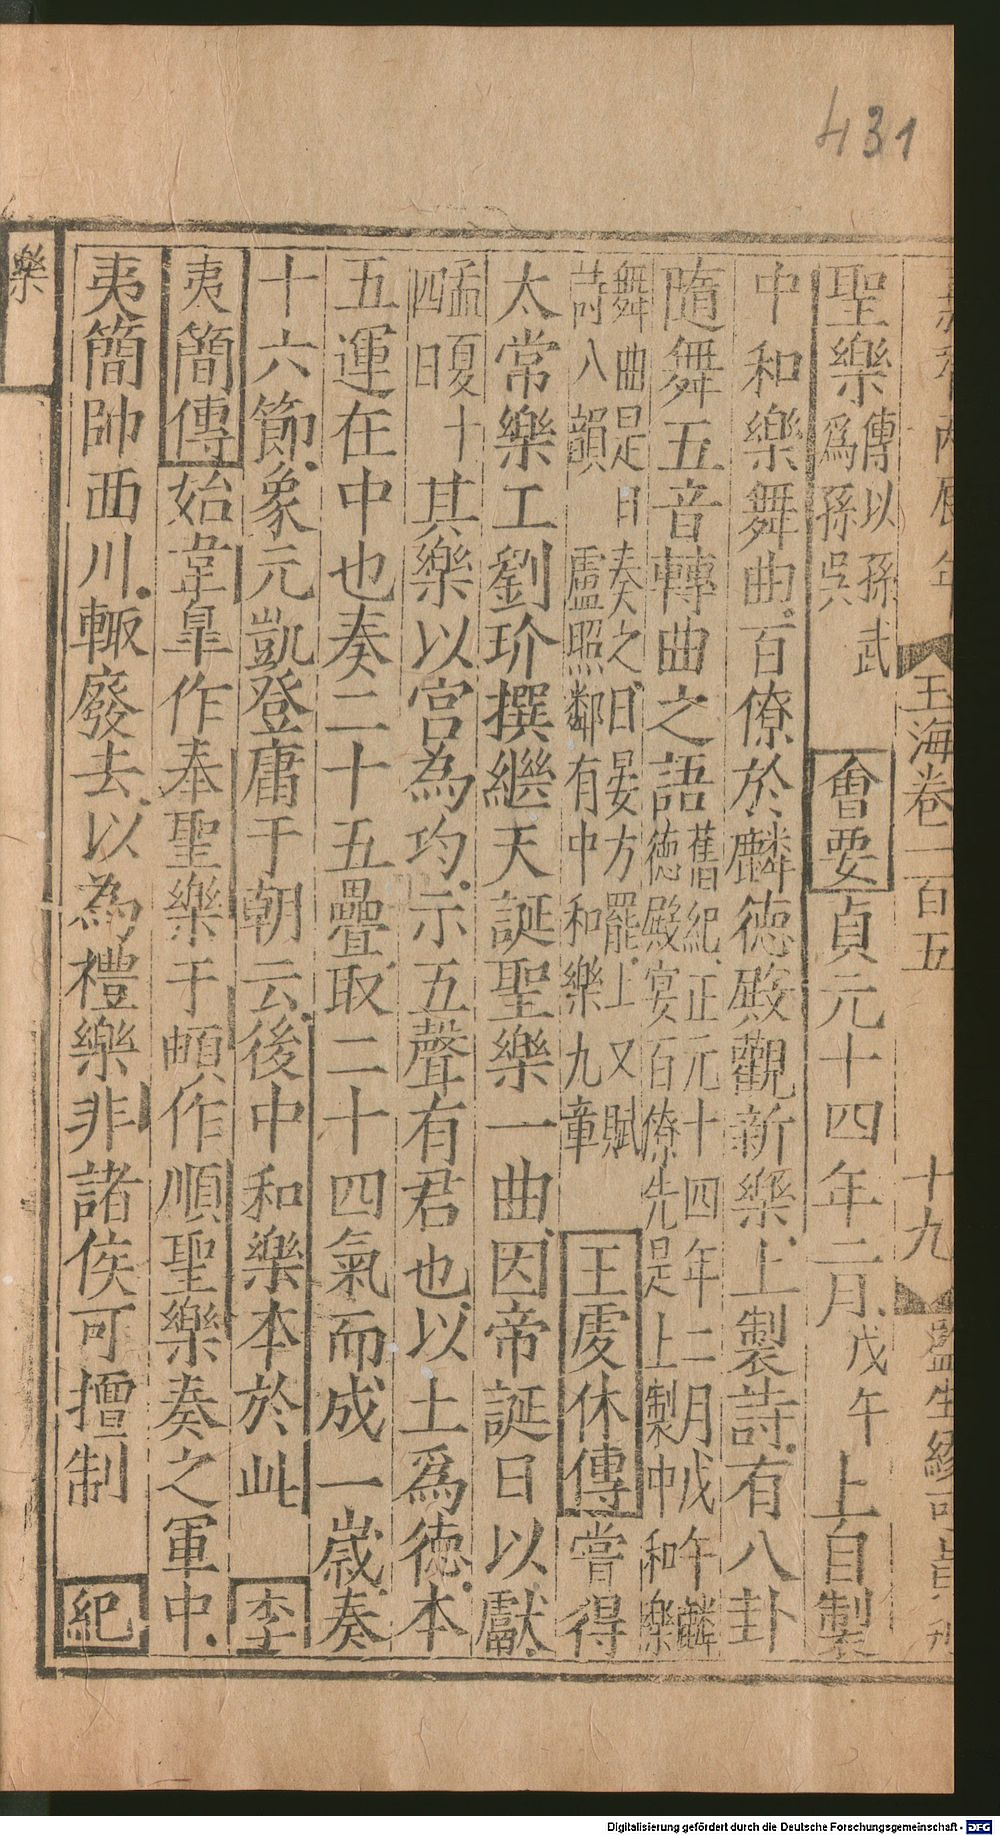 431
玉海卷一百五 十九
聖樂傳以孫武爲孫吳 會要貞元十四年二月戊午上自製
中和樂舞曲百僚於麟德殿觀新樂上製詩有八卦
隨舞五音轉曲之語舊紀正元十四年二月戊午麟德殿宴百僚先是上製中和樂
舞曲是日奏之日晏方罷上又賦詩八韻 盧照鄰有中和樂九章 王虔休傳嘗得
太常樂工劉玠撰繼天誕聖樂一曲因帝誕日以獻
孟夏十四日其樂以宮為均示五聲有君也以土爲德本
五運在中也奏二十五疊取二十四氣而成一歲奏
十六節象元凱登庸于朝云後中和樂本於此 李
夷簡傳始韋皐作奉聖樂于頔作順聖樂奏之軍中
夷簡帥西川輙廢去以為禮樂非諸侯可擅制 紀
樂
Digitalisierung gefördert durch die Deutsche Forschungsgemeinschaft - DFG